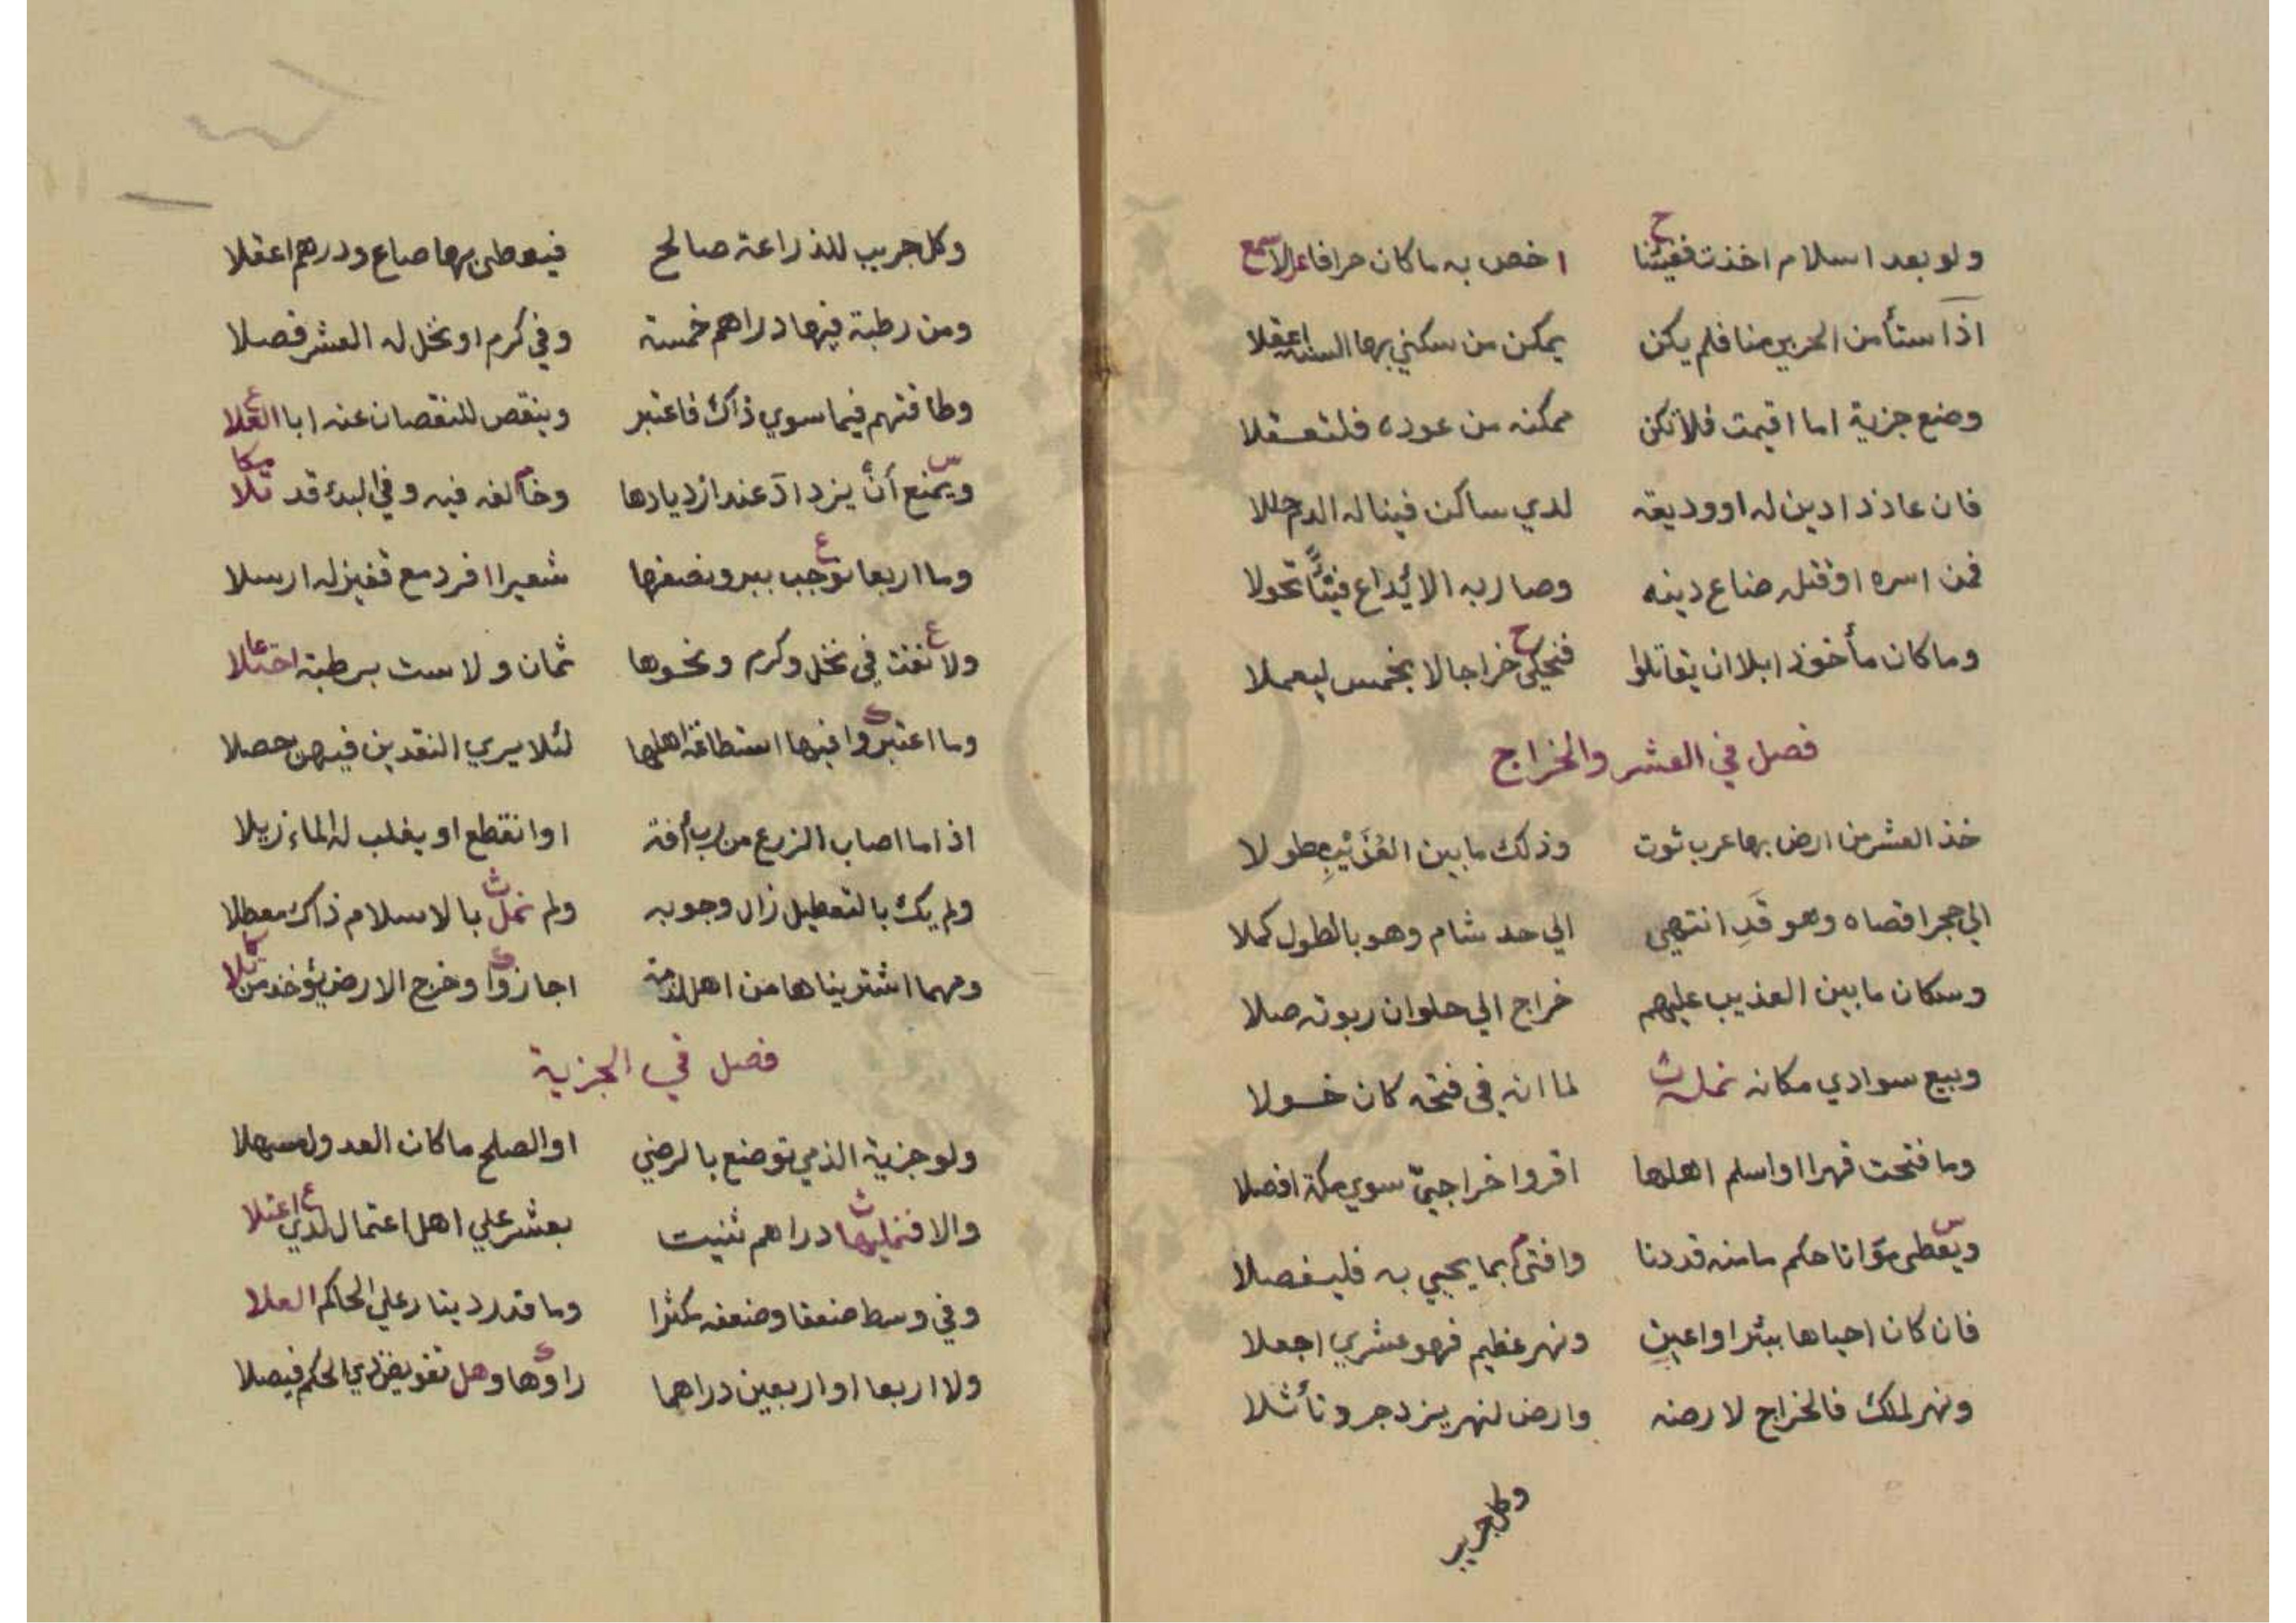 ولو بعد اسلام اخذت ففيئنا اخص به ما كان حرافا
اذا ستأمن الحربي منا فلم يكن يمكن من سكني بها السنة اعقلا
وضع جزية اما اقيمت فلا تكن ممكنه من عوده فلتعقلا
فان عاد ذا دين له او وديعة لدي ساكن فينا له الدم حللا
فمن اسره او قتله ضاع دينه وصار به الايداع فيئا تحولا
وما كان مأخوذا بلا ان يقاتلوا فنحكي خراجا لا بخمس ليعملا
فصل في العشر والخراج
خذ العشر من ارض بها عرب ثوت وذلك ما بين العذيب طولا
الي حجر اقصاه وهو قد انتهي الي حد شام وهو بالطول كملا
وسكان ما بين العذيب عليهم خراج الي حلوان ربوته صلا
وبيع سوادي مكانه نمله لما انه في فتحه كان خولا
وما فتحت قهرا او اسلم اهلها اقروا خراجي سوي مكة افصلا
ويعطي مواتا حكم ما منه قد دنا وافتي بما يحيي به فليفصلا
فان كان احياها ببئر او اعين ونهر عظيم فهو عشري اجعلا
ونهر لملك فالخراج لارضه وارض لنهر يزدجرد تأثلا
وكل جريب
وكل جريب للذراعة صالح فيعطي بها صاع ودرهم اعقلا
ومن رطبة فيها دراهم خمسة وفي كرم او نخل له العشر فصلا
وطاقتهم فيما سوي ذاك فاعتبر وينقص للنقصان عنه ابا العلا
ويمنع أن يزداد عند ازديادها وخالفه فيه وفي البدء قد تلا
وما اربعا نوجب ببر ونصفها شعيرا افرد مع قفيز له ارسلا
ولا نفتت في نخل وكرم ونحوها ثمان ولا ست برطبة اختلا
وما اعتبروا فيها استطاعة اهلها لئلا يري النقدين فيهن حصلا
اذا ما اصاب الزرع من رب أفة او انقطع او يغلب له الماء زيلا
ولم يك بالتعطيل زال وجوبه ولم نمل بالاسلام ذاك معطلا
ومهما اشتريناها من اهل لذمة اجازوا وخرج الارض يؤخذ من تلا
فصل في الجزية
ولو جزية الذمي توضع بالرضي او الصلح ما كان العدول مسهلا
والا فنمليها دراهم ثنيت بعشر علي اهل اعتمال لدي اعتلا
وفي وسط ضعفا وضعفه مكثرا وما قدر دينار علي الحاكم العلا
ولا اربعا او اربعين دراهما راوها وهل تفويض ذي الحكم فيصلا